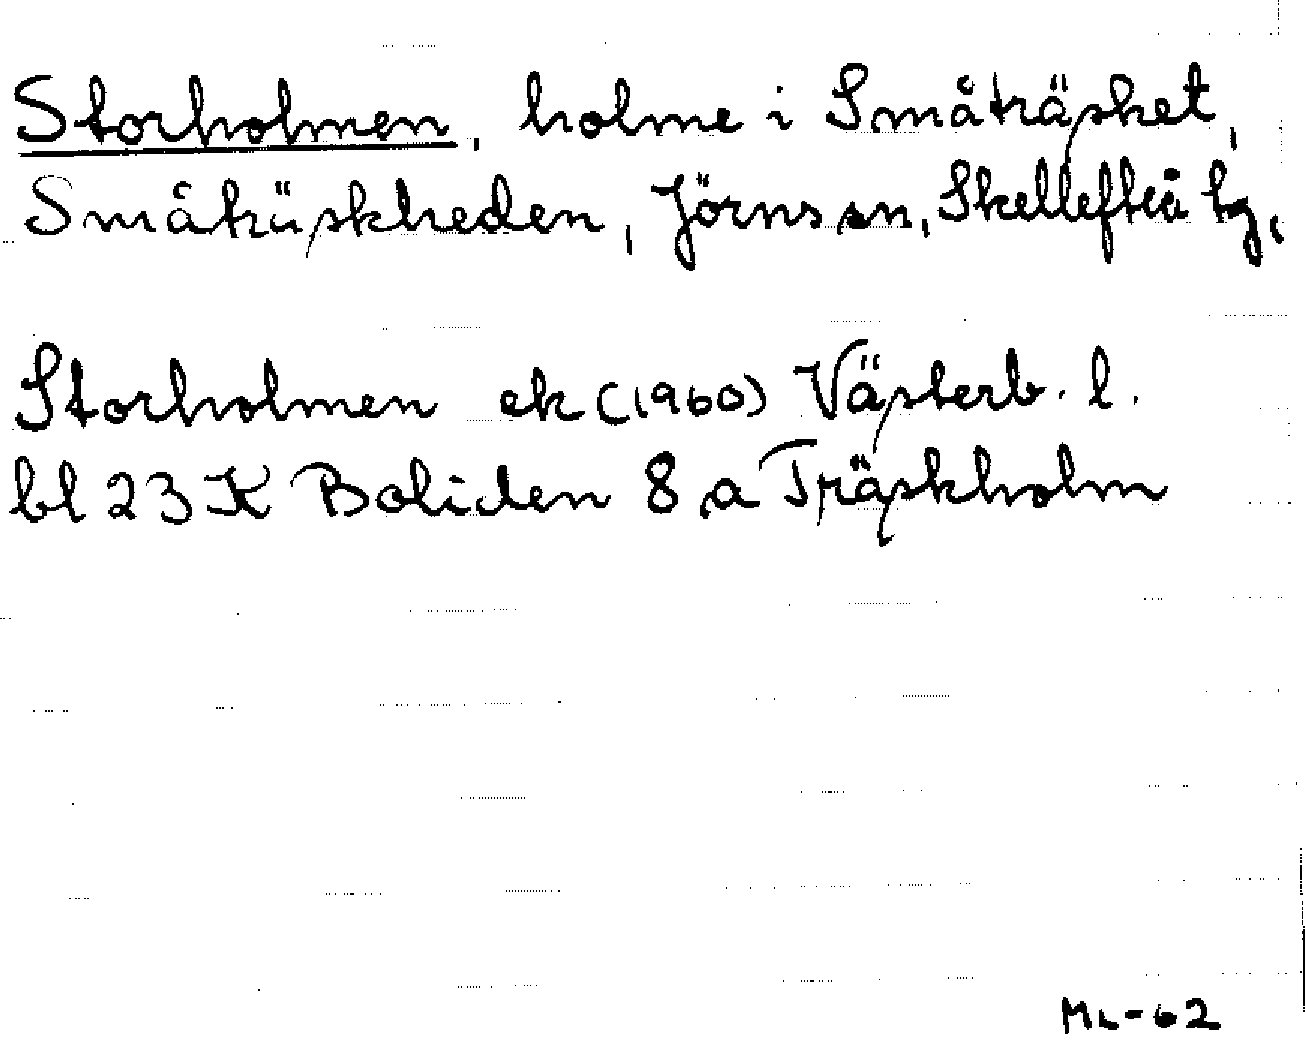 Storholmen, holme i Småträsket,
Småträskheden, Jörns sn, Skellefteå tg,
Storholmen ek (1960) Västerb. l.
bl 23 K Boliden 8 a Träskholm
ML-62